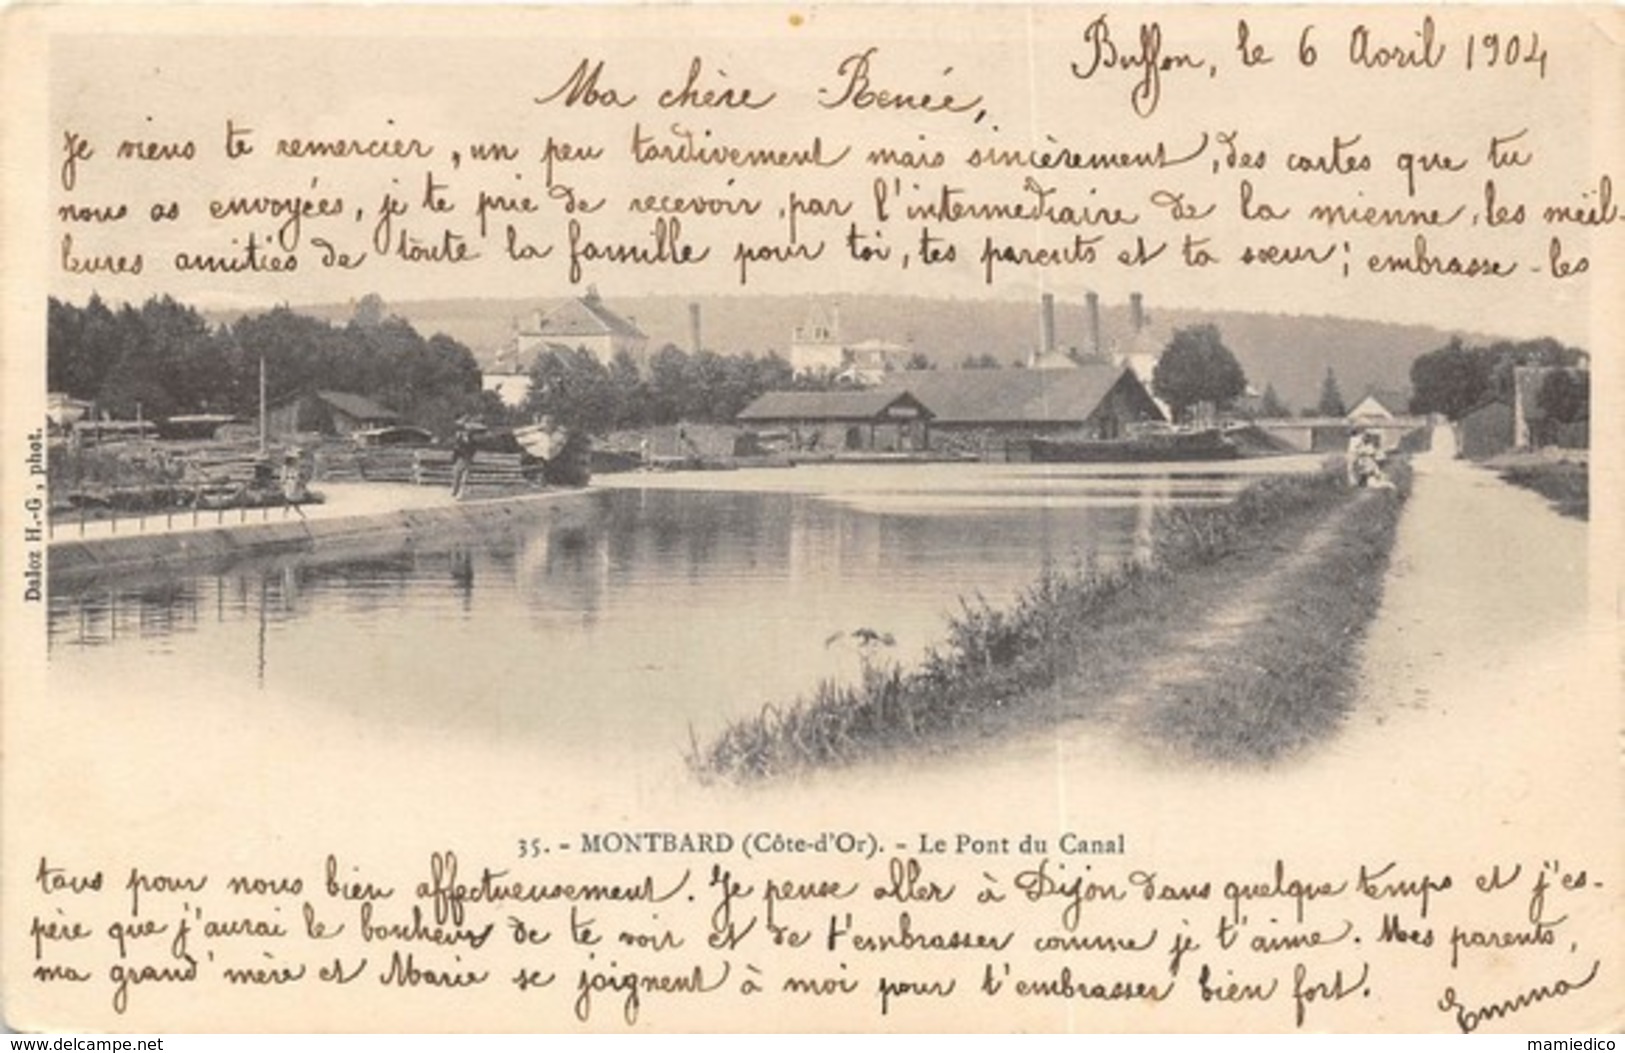 Buffon, le 6 Avril 1904
Ma chère Renée,
Je viens te remercier, un peu tardivement mais sincèrement, des cartes que tu
nous as envoyées, je te prie de recevoir, par l'intermédiaire de la mienne, les meil-
leures amitiés de toute la famille pour toi, tes parents et ta sœur; embrasse-les
Daloz H.-G, phot.
35. - MONTBARD (Côte-d'Or). - Le Pont du Canal
tous pour nous bien affectueusement. Je pense aller à Dijon dans quelque temps et j'es-
père que j'aurai le bonheur de te voir et de t'embrasser comme je t'aime. Mes parents,
ma grand'mère et Marie se joignent à moi pour t'embrasser bien fort.
Emma
www.delcampe.net
mamiedico